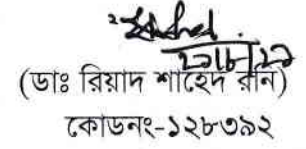 (ডাঃ রিয়াদ শাহেদ রনি)
কোডনং-১২৮৩৯২